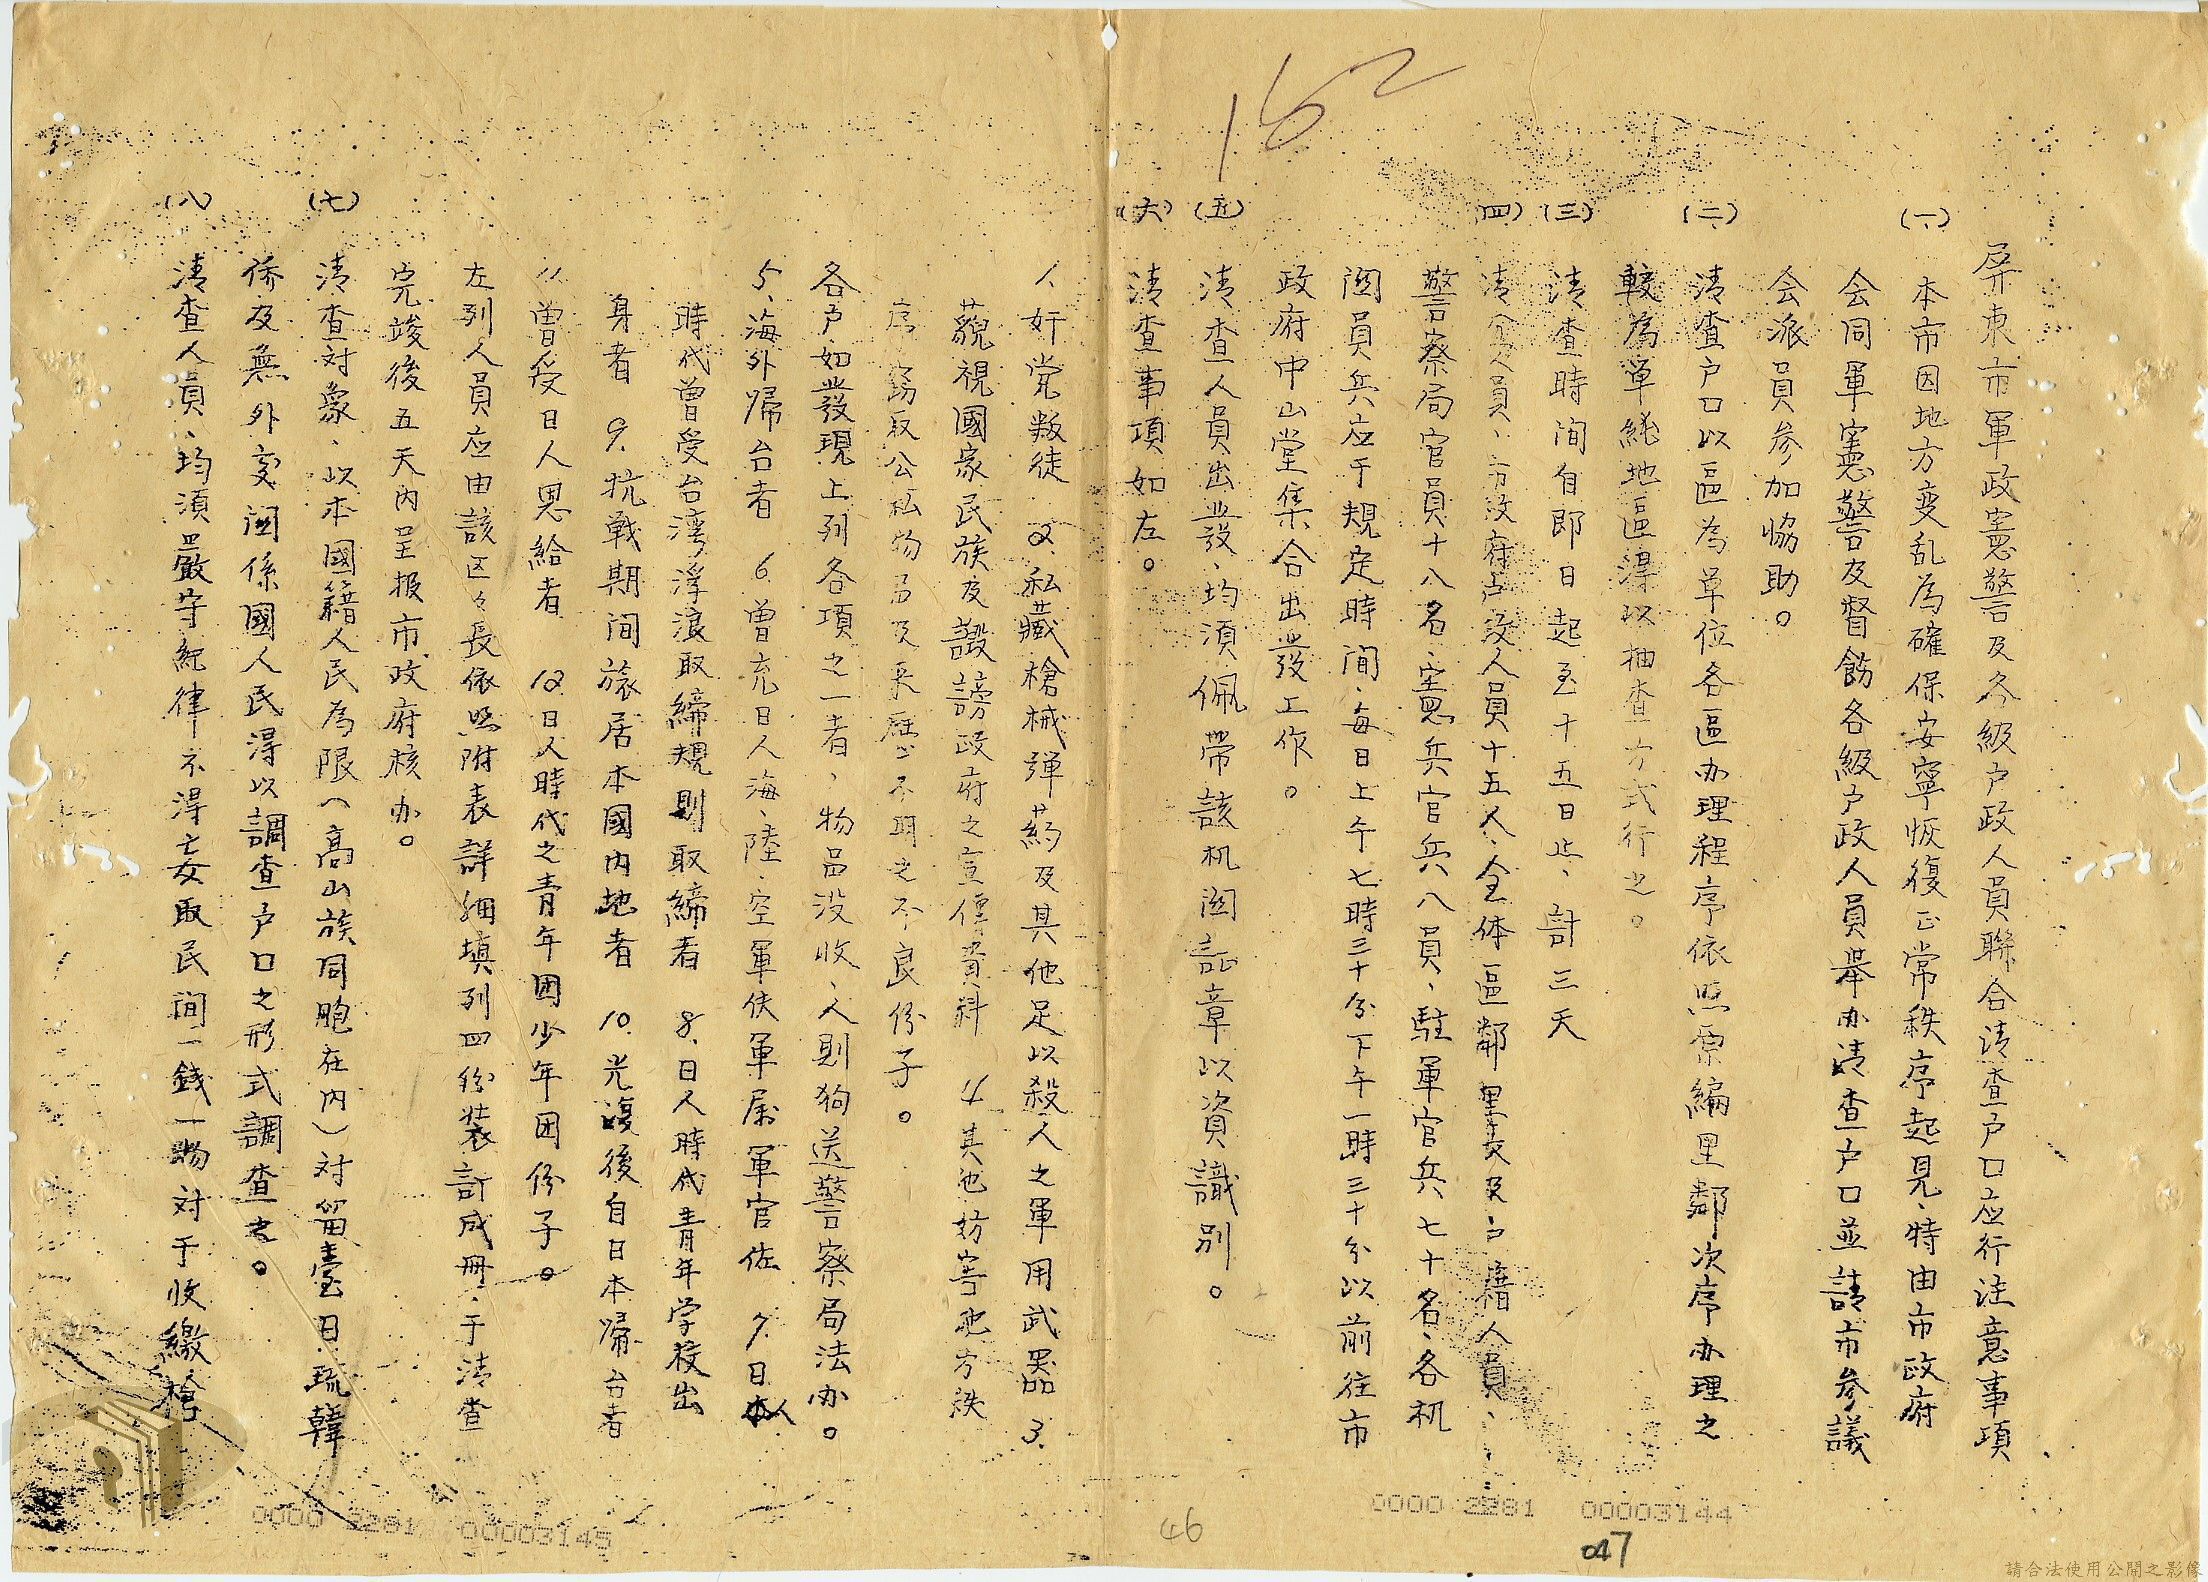 162
屏東市軍政憲警及各級户政人員聯合清查户口应行注意事項
(一) 本市因地方变乱為確保安寧恢復正常秩序起見、特由市政府
会同軍憲警及督飭各級户政人員舉办清查户口並請市参議
会派員参加協助。
(二) 清查户口以區為单位各區办理程序依照原編里鄰次序办理之
較為单純地區得以抽查方式行之。
(三) 清查時间自即日起至十五日止、計三天
(四) 清查人員、市政府户政人員十五人、全体區鄰里長及户籍人員、
警察局官員十八名、憲兵官兵八員、駐軍官兵七十名、各机
関員兵应于規定時间、每日上午七時三十分下午一時三十分以前往市
政府中山堂集合出發工作。
(五) 清查人員出發、均須佩帶該机関証章以資識別。
(六) 清查事項如左。
1、奸党叛徒 2、私藏槍械弹药及其他足以殺人之軍用武器 3.
藐視國家民族及譭謗政府之宣傳資料 4其他妨害地方秩
序窃取公私物品及来歷不明之不良份子。
各户如發現上列各項之一者，物品没收、人則狗送警察局法办。
5、海外歸台者 6.曾充日人海、陸、空軍伕軍屬軍官佐 7.日本人
時代曾受台湾浮浪取締規則取締者 8.日人時代青年学校出
身者 9.抗戰期间旅居本國内地者 10.光復後自日本歸台者
11曾受日人恩給者 12日人時代之青年团少年团份子。
左列人員应由該区々長依照附表詳細填列四份裝訂成冊、于清查
完竣後五天内呈报市政府核办。
(七) 清查対象、以本國籍人民為限(高山族同胞在内)対留臺日.琉韓
侨及無外交関係國人民得以調查户口之形式調查之。
(八) 清查人員、均須嚴守紀律不得妄取民间一錢一物対于收繳槍
46
047
0000 2281 00003144
0000 2281 00003145
請合法使用公開之影像